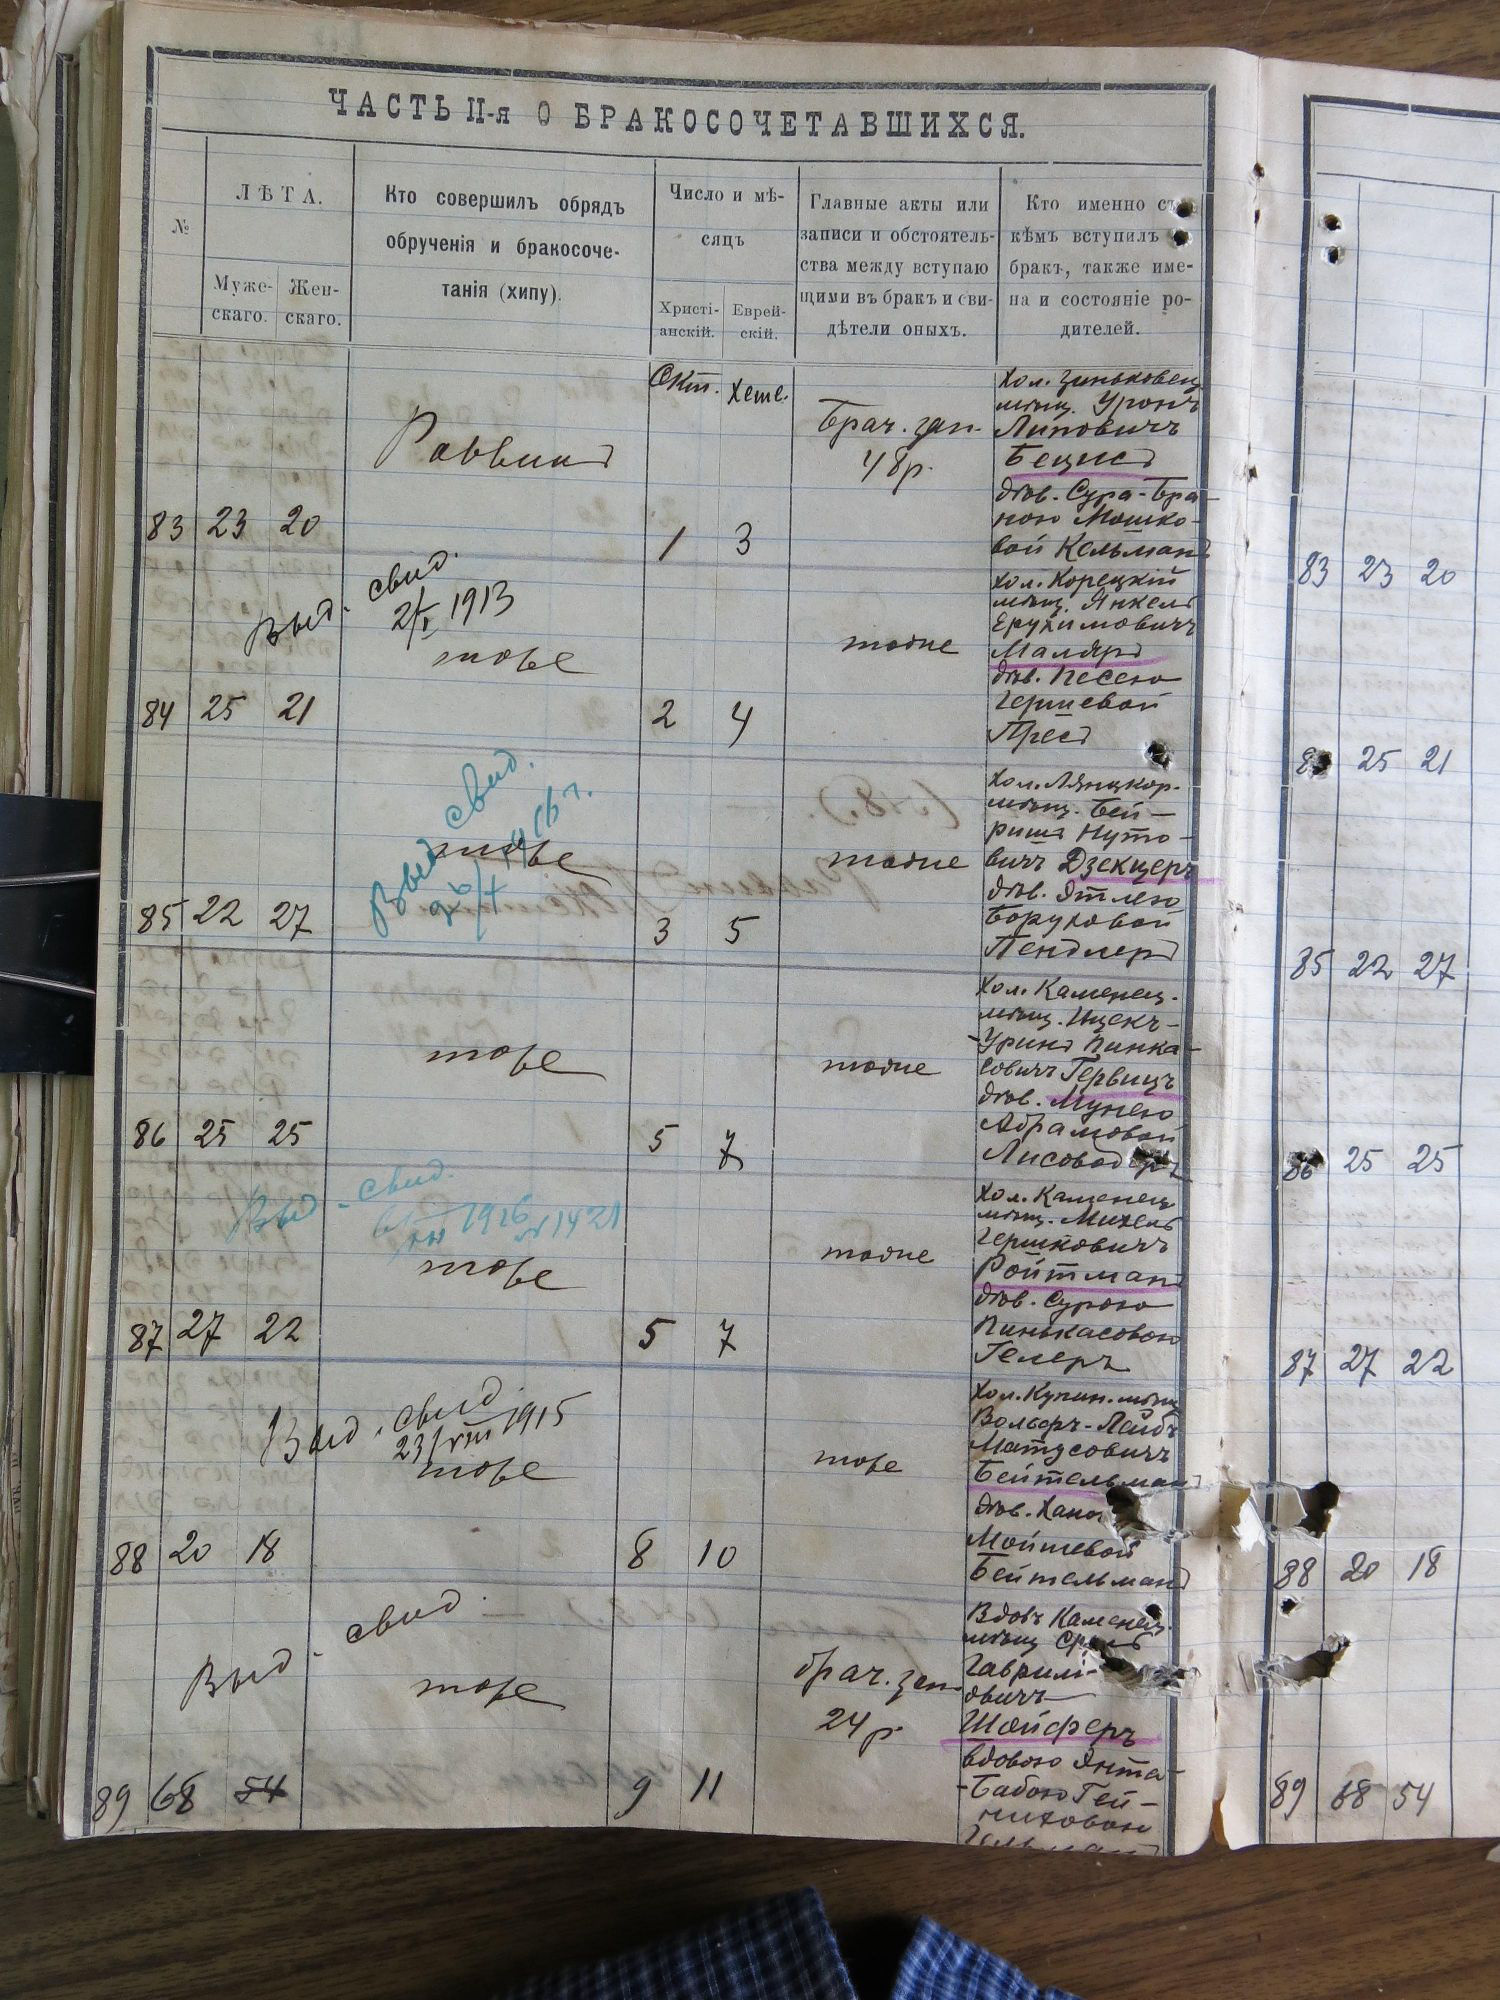 ЧАСТЬ II-я О БРАКОСОЧЕТАВШИХСЯ.
№
ЛѢТА.
Муже-
скаго.
Жен-
скаго.
Кто совершилъ обрядъ
обрученія и бракосоче-
танія (хипу).
Число и мѣ-
сяцъ
Христі-
анскій.
Еврей-
скій.
Главные акты или
записи и обстоятель-
ства между вступаю
щими въ бракъ и сви-
дѣтели оныхъ.
Кто именно съ
кѣмъ вступилъ
бракъ, также име-
на и состояніе ро-
дителей.
Окт. Хеше.
83 23 20
Раввинъ
1 3
Брач. зап.
48 р.
хол. Зиньковец.
мѣщ. Уронъ
Липовичъ
Бецисъ
дѣв. Сура-Бра-
ною Мошко-
вой Кельманъ
Выд. свид.
2/I 1913
84 25 21
тоже
2 4
тоже
хол. Корецкій
мѣщ. Янкель
Ерухимовичъ
Маляръ
дѣв. Песею
Гершевой
Пресъ
Выд. свид.
85 22 27
тоже
3 5
тоже
хол. Лянцкор.
мѣщ. Бей-
ришъ Нуто-
вичъ Дзекцеръ
дѣв. Этлею
Боруховой
Пендлеръ
86 25 25
тоже
5 7
тоже
хол. Каменец.
мѣщ. Ицекъ-
-Уринъ Пинка-
совичъ Гервицъ
дѣв. Мунею
Абрамовой
Лисоводеръ
Выд. свид.
1916 № 1421
87 27 22
тоже
5 7
тоже
хол. Каменец.
мѣщ. Михель
Гершковичъ
Ройтманъ
дѣв. Сурою
Пинькасовою
Гелеръ
Выд. свид.
23/VIII 1915
88 20 18
тоже
8 10
тоже
хол. Купин. мѣщ.
Вольфъ-Лейбъ
Матусовичъ
Бейтельманъ
дѣв. Хано
Мойшевой
Бейтельманъ
Выд. свид.
89 68 54
тоже
9 11
брач. зап.
24 р.
Вдовъ Каменец.
мѣщ. Сруль
Гаврилі-
овичъ
Шойферъ
вдовою Энта-
-Бабою Гей-
ниховою
83 23 20
25 21
85 22 27
86 25 25
87 27 22
88 20 18
89 68 54